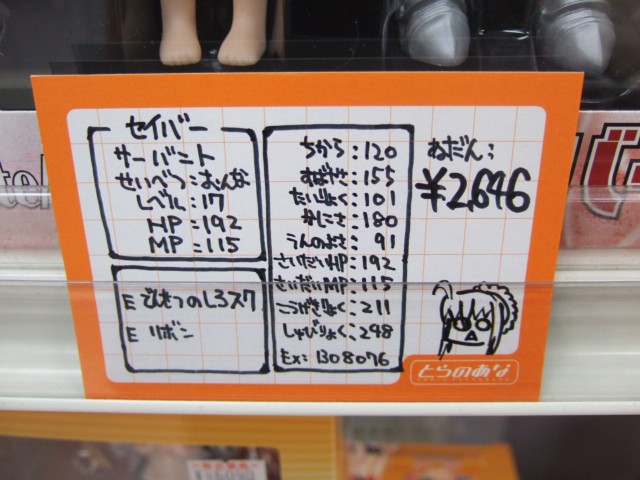 セイバー
サーバント
せいべつ:おんな
レベル:17
HP:192
MP:115
E でんせつのしろスク
E リボン
ちから:120
すばやさ:155
たいりょく:101
かしこさ:180
うんのよさ:91
さいだいHP:192
さいだいMP:115
こうげきりょく:211
しゅびりょく:298
Ex:1308076
ねだん:
¥2,646
とらのあな